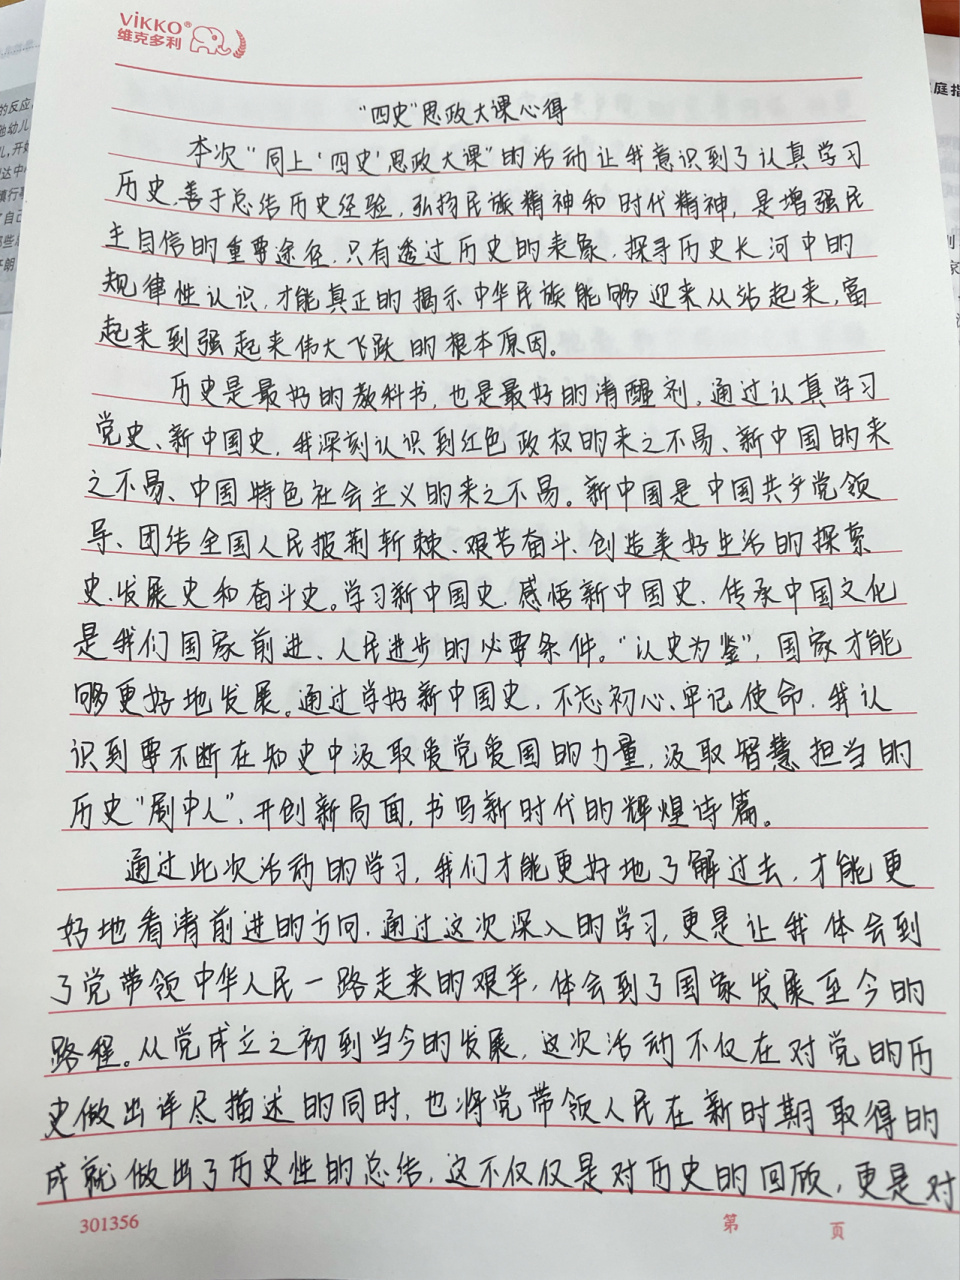 ViKKO®
维克多利
"四史"思政大课心得
本次"同上'四史'思政大课"的活动让我意识到了认真学习
历史,善于总结历史经验,弘扬民族精神和时代精神,是增强民
主自信的重要途径,只有透过历史的表象,探寻历史长河中的
规律性认识,才能真正的揭示中华民族能够迎来从站起来,富
起来到强起来伟大飞跃的根本原因。
历史是最好的教科书,也是最好的清醒剂,通过认真学习
党史、新中国史,我深刻认识到红色政权的来之不易、新中国的来
之不易、中国特色社会主义的来之不易。新中国是中国共产党领
导、团结全国人民披荆斩棘、艰苦奋斗、创造美好生活的探索
史、发展史和奋斗史。学习新中国史,感悟新中国史、传承中国文化
是我们国家前进、人民进步的必要条件。"认史为鉴",国家才能
够更好地发展。通过学好新中国史,不忘初心、牢记使命,我认
识到要不断在知史中汲取爱党爱国的力量,汲取智慧担当的
历史"剧中人",开创新局面,书写新时代的辉煌诗篇。
通过此次活动的学习,我们才能更好地了解过去,才能更
好地看清前进的方向,通过这次深入的学习,更是让我体会到
了党带领中华人民一路走来的艰辛,体会到了国家发展至今的
路程。从党成立之初到当今的发展,这次活动不仅在对党的历
史做出详尽描述的同时,也将党带领人民在新时期取得的
成就做出了历史性的总结,这不仅仅是对历史的回顾,更是对
301356
第 页
的反应
儿,开始
达中
填行
了自己
那些
开朗
庭指